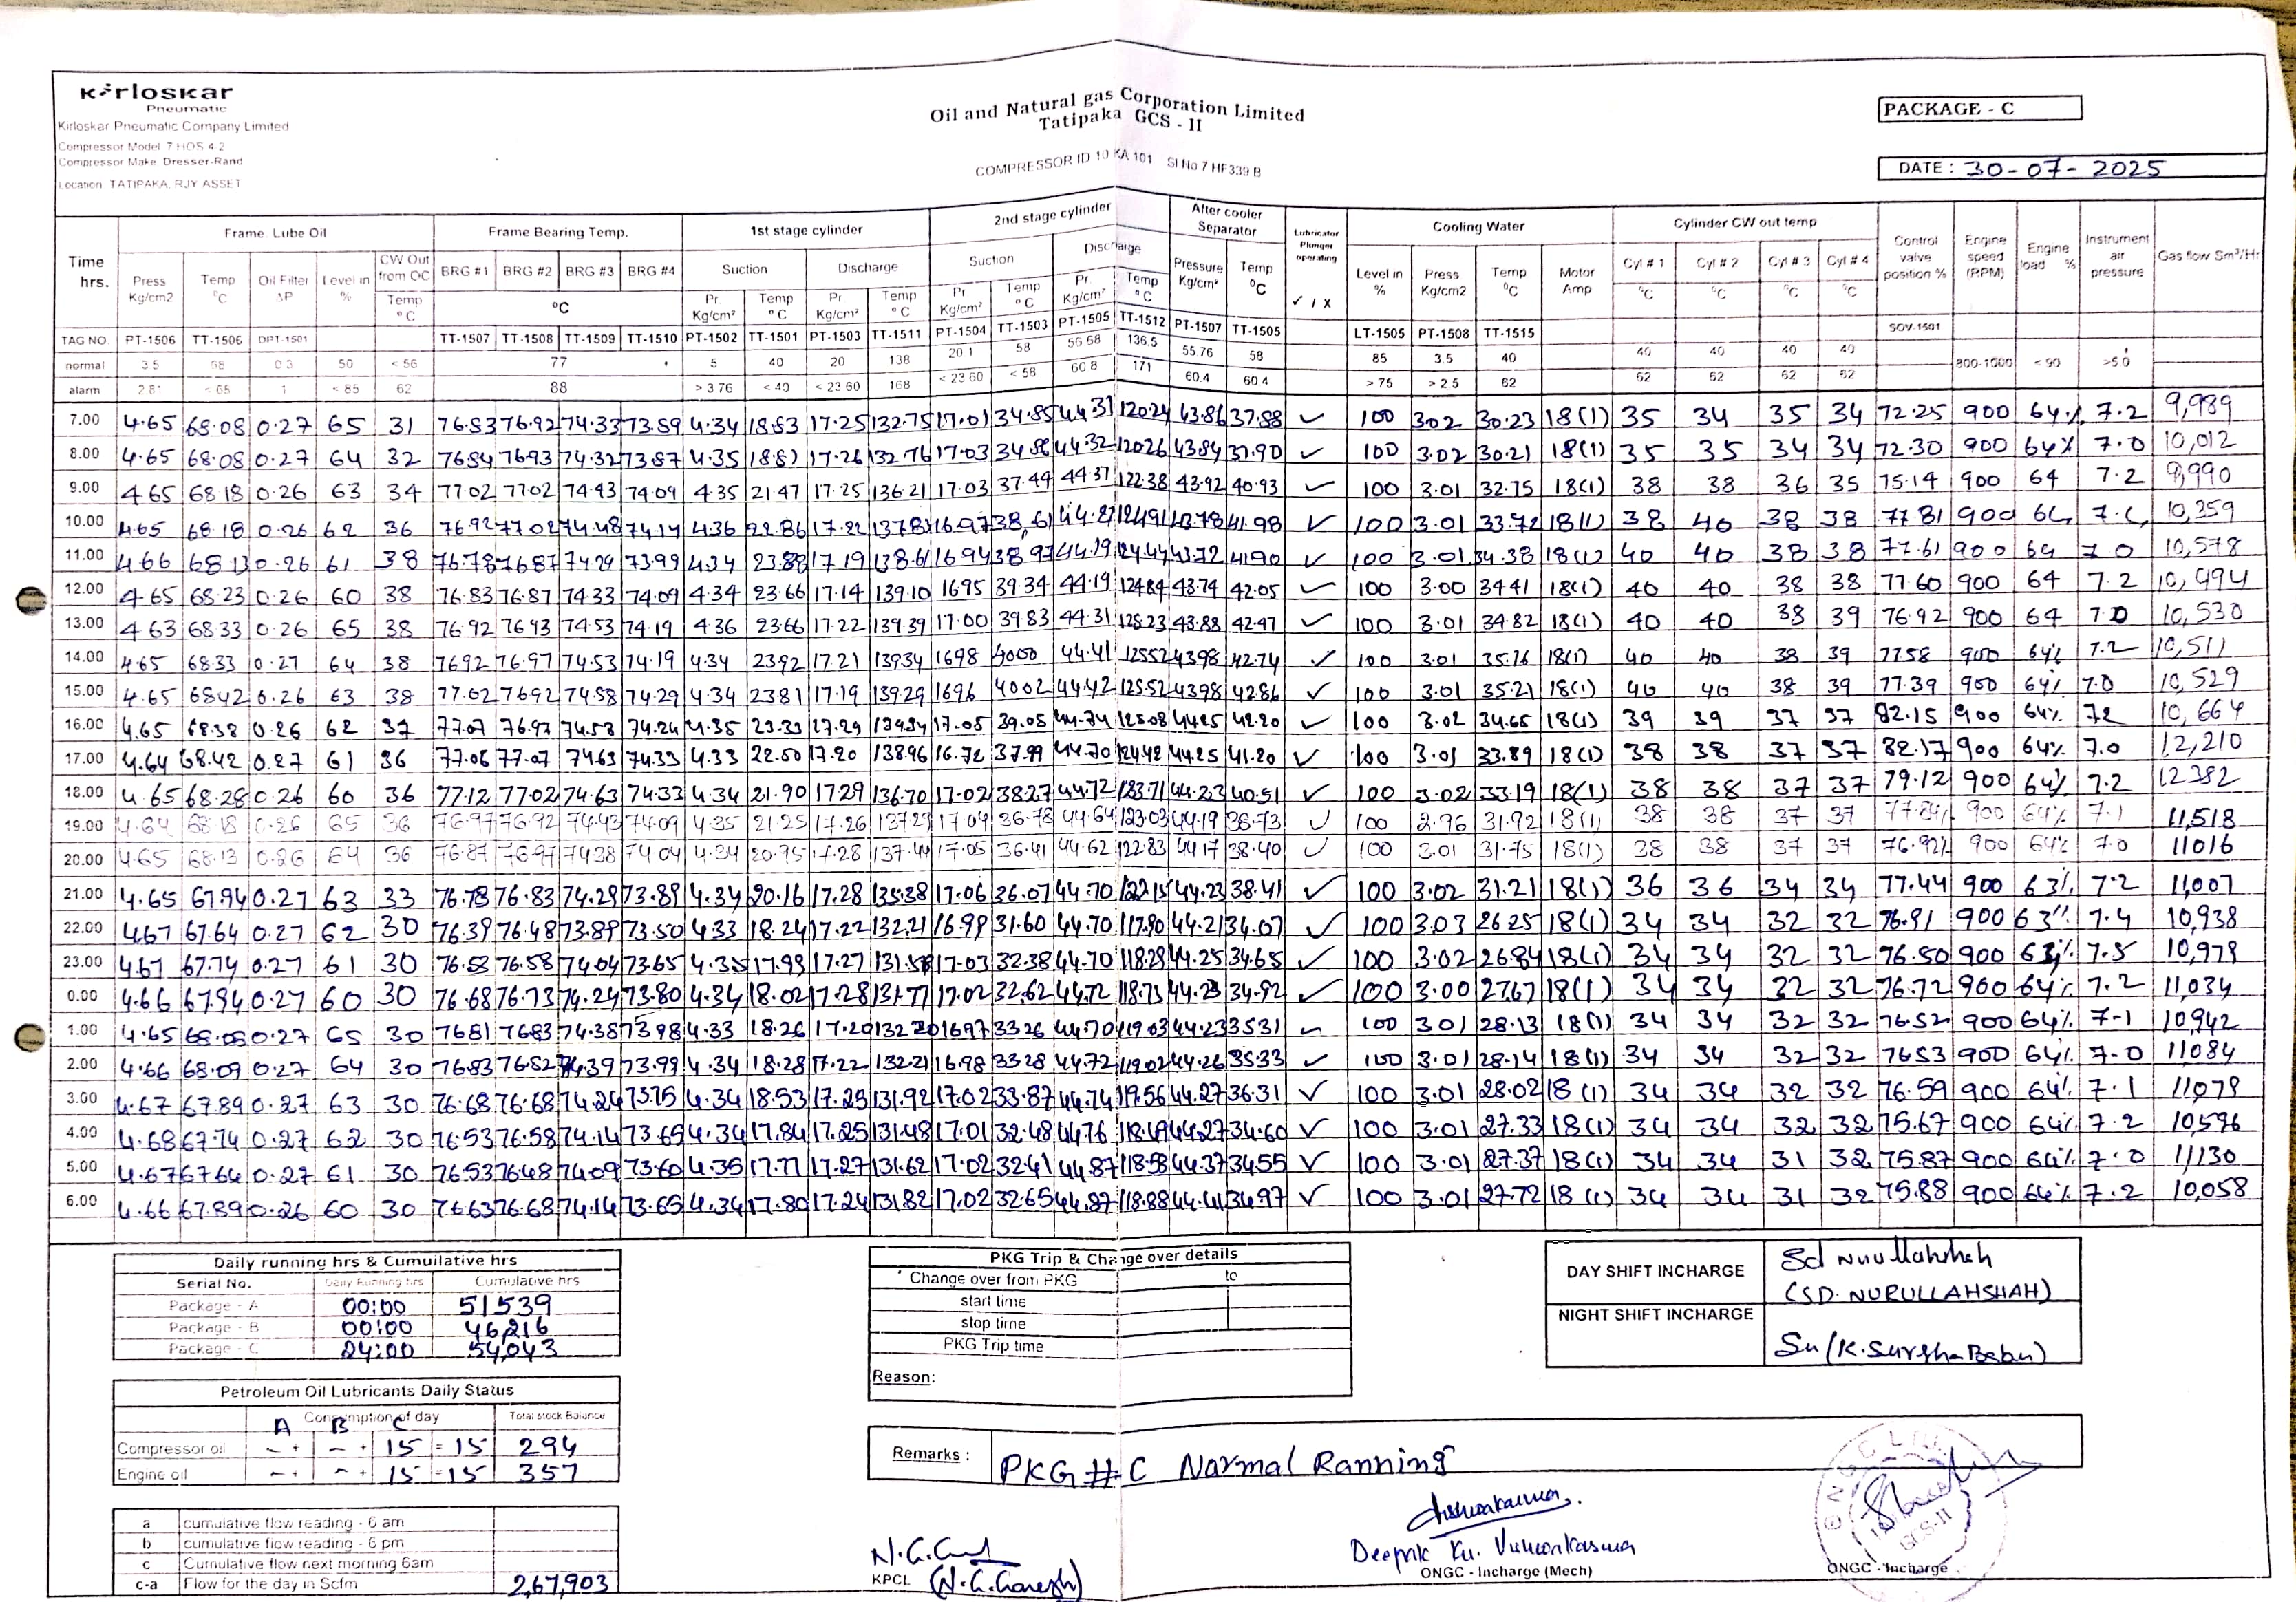 Kirloskar
Pneumatic
Kirloskar Pneumatic Company Limited
Compressor Model 7 HOS 4.2
Compressor Make Dresser-Rand
Location TATIPAKA, RJY ASSET
Oil and Natural gas Corporation Limited
Tatipaka GCS - II
COMPRESSOR ID 10 KA 101 Sl No 7 HF339 B
PACKAGE - C
DATE : 30-07-2025
Time hrs. Frame. Lube Oil Frame Bearing Temp. 1st stage cylinder 2nd stage cylinder After cooler Separator Lubricator Plunger operating ✓ / X Cooling Water Cylinder CW out temp Control valve position % Engine speed (RPM) Engine load % Instrument air pressure Gas flow Sm³/Hr
Press Kg/cm2 Temp °C Oil Filter ΔP Level in % CW Out from OC Temp °C BRG #1 BRG #2 BRG #3 BRG #4 °C Suction Discharge Suction Discharge Pressure Kg/cm² Temp °C Level in % Press Kg/cm2 Temp °C Motor Amp Cyl # 1 Cyl # 2 Cyl # 3 Cyl # 4
Pr. Kg/cm² Temp °C Pr Kg/cm² Temp °C Pr Kg/cm² Temp °C Pr Kg/cm² Temp °C °C °C °C °C
TAG NO. PT-1506 TT-1506 DPT-1501 TT-1507 TT-1508 TT-1509 TT-1510 PT-1502 TT-1501 PT-1503 TT-1511 PT-1504 TT-1503 PT-1505 TT-1512 PT-1507 TT-1505 LT-1505 PT-1508 TT-1515 SOV-1501
normal 3.5 68 0.3 50 < 56 77 5 40 20 138 20 1 58 56 58 136.5 55.76 58 85 3.5 40 40 40 40 40 800-1000 < 90 >5.0
alarm 2.81 < 65 1 < 85 62 88 > 3.76 < 40 < 23 60 168 < 23 60 < 58 60 8 171 60.4 60 4 > 75 > 2.5 62 62 62 62 62
7.00 4.65 68.08 0.27 65 31 76.83 76.92 74.33 73.89 4.34 18.83 17.25 132.75 17.01 34.85 44.31 120.24 43.86 37.88 ✓ 100 302 30.23 18(1) 35 34 35 34 72.25 900 64% 7.2 9,989
8.00 4.65 68.08 0.27 64 32 76.84 76.93 74.32 73.87 4.35 18.81 17.26 132.76 17.03 34.86 44.32 120.26 43.84 37.90 ✓ 100 3.02 30.21 18(1) 35 35 34 34 72.30 900 64% 7.0 10,012
9.00 4.65 68.18 0.26 63 34 77.02 77.02 74.43 74.09 4.35 21.47 17.25 136.21 17.03 37.44 44.37 122.38 43.92 40.93 ✓ 100 3.01 32.75 18(1) 38 38 36 35 75.14 900 64 7.2 9,990
10.00 4.65 68.18 0.26 62 36 76.92 77.02 74.48 74.14 4.36 22.86 17.22 137.83 16.97 38.61 44.27 124.91 43.78 41.98 ✓ 100 3.01 33.72 18(1) 38 40 38 38 77.81 900 10,359
11.00 4.66 68.13 0.26 61 38 76.78 76.87 74.29 73.99 4.34 23.88 17.19 138.61 16.94 38.97 44.19 124.44 43.72 41.90 ✓ 100 3.01 34.38 18(1) 40 40 38 38 77.61 900 64 7.0 10,578
12.00 4.65 68.23 0.26 60 38 76.83 76.87 74.33 74.09 4.34 23.66 17.14 139.10 16.95 39.34 44.19 124.84 43.74 42.05 ✓ 100 3.00 34.41 18(1) 40 40 38 38 77.60 900 64 7.2 10,494
13.00 4.63 68.33 0.26 65 38 76.92 76.93 74.53 74.19 4.36 23.66 17.22 139.39 17.00 39.83 44.31 125.23 43.88 42.47 ✓ 100 3.01 34.82 18(1) 40 40 38 39 76.92 900 64 7.0 10,530
14.00 4.65 68.33 0.27 64 38 76.92 76.97 74.53 74.19 4.34 23.92 17.21 139.34 16.98 40.00 44.41 125.52 43.98 42.74 ✓ 100 3.01 35.16 18(1) 40 40 38 39 77.58 900 64% 7.2 10,511
15.00 4.65 68.42 0.26 63 38 77.02 76.92 74.58 74.29 4.34 23.81 17.19 139.29 16.96 40.02 44.42 125.52 43.98 42.86 ✓ 100 3.01 35.21 18(1) 40 40 38 39 77.39 900 64% 7.0 10,529
16.00 4.65 68.38 0.26 62 37 77.07 76.97 74.53 74.24 4.35 23.33 17.29 139.34 17.05 39.05 44.74 125.08 44.25 42.20 ✓ 100 3.02 34.65 18(1) 39 39 37 37 82.15 900 64% 7.2 10,664
17.00 4.64 68.42 0.27 61 36 77.06 77.07 74.63 74.33 4.33 22.50 17.20 138.96 16.72 37.99 44.70 124.42 44.25 41.20 ✓ 100 3.01 33.89 18(1) 38 38 37 37 82.17 900 64% 7.0 12,210
18.00 4.65 68.28 0.26 60 36 77.12 77.02 74.63 74.33 4.34 21.90 17.29 136.70 17.02 38.27 44.72 123.71 44.23 40.51 ✓ 100 3.02 33.19 18(1) 38 38 37 37 79.12 900 64% 7.2 12382
19.00 4.64 68.18 0.26 65 36 76.97 76.92 74.43 74.09 4.35 21.25 17.26 137.27 17.04 36.78 44.64 123.03 44.19 38.73 ✓ 100 2.96 31.92 18(1) 38 38 37 37 77.84% 900 64% 7.1 11,518
20.00 4.65 68.13 0.26 64 36 76.87 76.97 74.38 74.04 4.34 20.95 17.28 137.44 17.05 36.41 44.62 122.83 44.17 38.40 ✓ 100 3.01 31.75 18(1) 38 38 37 37 76.92% 900 64% 7.0 11016
21.00 4.65 67.94 0.27 63 33 76.78 76.83 74.29 73.89 4.34 20.16 17.28 135.38 17.06 36.07 44.70 122.15 44.23 38.41 ✓ 100 3.02 31.21 18(1) 36 36 34 34 77.44 900 63% 7.2 11,007
22.00 4.67 67.64 0.27 62 30 76.39 76.48 73.89 73.50 4.33 18.24 17.22 132.21 16.99 31.60 44.70 117.90 44.21 34.07 ✓ 100 3.03 26.25 18(1) 34 34 32 32 76.91 900 63% 7.4 10,938
23.00 4.67 67.74 0.27 61 30 76.53 76.58 74.04 73.65 4.35 17.99 17.27 131.58 17.03 32.38 44.70 118.29 44.25 34.65 ✓ 100 3.02 26.84 18(1) 34 34 32 32 76.50 900 63% 7.5 10,979
0.00 4.66 67.94 0.27 60 30 76.68 76.73 74.24 73.80 4.34 18.02 17.28 131.77 17.02 32.62 44.72 118.75 44.23 34.92 ✓ 100 3.00 27.67 18(1) 34 34 32 32 76.72 900 64% 7.2 11,034
1.00 4.65 68.08 0.27 65 30 76.81 76.83 74.38 73.98 4.33 18.26 17.20 132.20 16.97 33.26 44.70 119.03 44.23 35.31 ✓ 100 3.01 28.13 18(1) 34 34 32 32 76.52 900 64% 7-1 10,942
2.00 4.66 68.09 0.27 64 30 76.83 76.82 74.39 73.99 4.34 18.28 17.22 132.21 16.98 33.28 44.72 119.02 44.26 35.33 ✓ 100 3.01 28.14 18(1) 34 34 32 32 76.53 900 64% 7-0 11084
3.00 4.67 67.89 0.27 63 30 76.68 76.68 74.24 73.75 4.34 18.53 17.25 131.92 17.02 33.87 44.74 119.56 44.27 36.31 ✓ 100 3.01 28.02 18(1) 34 34 32 32 76.59 900 64% 7.1 11,079
4.00 4.68 67.74 0.27 62 30 76.53 76.58 74.14 73.65 4.34 17.84 17.25 131.48 17.01 32.48 44.76 118.49 44.27 34.60 ✓ 100 3.01 27.33 18(1) 34 34 32 32 75.67 900 64% 7.2 10,596
5.00 4.67 67.64 0.27 61 30 76.53 76.48 74.09 73.60 4.35 17.71 17.27 131.62 17.02 32.41 44.87 118.58 44.37 34.55 ✓ 100 3.01 27.37 18(1) 34 34 31 32 75.87 900 64% 7.0 11,130
6.00 4.66 67.89 0.26 60 30 76.63 76.68 74.14 73.65 4.34 17.80 17.24 131.82 17.02 32.65 44.87 118.88 44.41 34.97 ✓ 100 3.01 27.72 18(1) 34 34 31 32 75.88 900 64% 7.2 10,058
Daily running hrs & Cumuilative hrs
Serial No. Daily Running hrs Cumulative hrs
Package - A 00:00 51539
Package - B 00:00 46,216
Package - C 24:00 54,043
Petroleum Oil Lubricants Daily Status
Consumption of day Total stock Balance
A B C
Compressor oil - + - + 15 = 15 294
Engine oil - + - + 15 = 15 357
a cumulative flow reading - 6 am
b cumulative flow reading - 6 pm
c Cumulative flow next morning 6am
c-a Flow for the day in Scfm 2,67,903
PKG Trip & Change over details
Change over from PKG to
start time
stop time
PKG Trip time
Reason:
DAY SHIFT INCHARGE Sd Nurullahshah
(SD. NURULLAHSHAH)
NIGHT SHIFT INCHARGE
Remarks : PKG # C Normal Running
KPCL (N.G.Ganesh)
Deepak Ku. Vishwakarma
ONGC - Incharge (Mech)
ONGC - Incharge
GCS-II